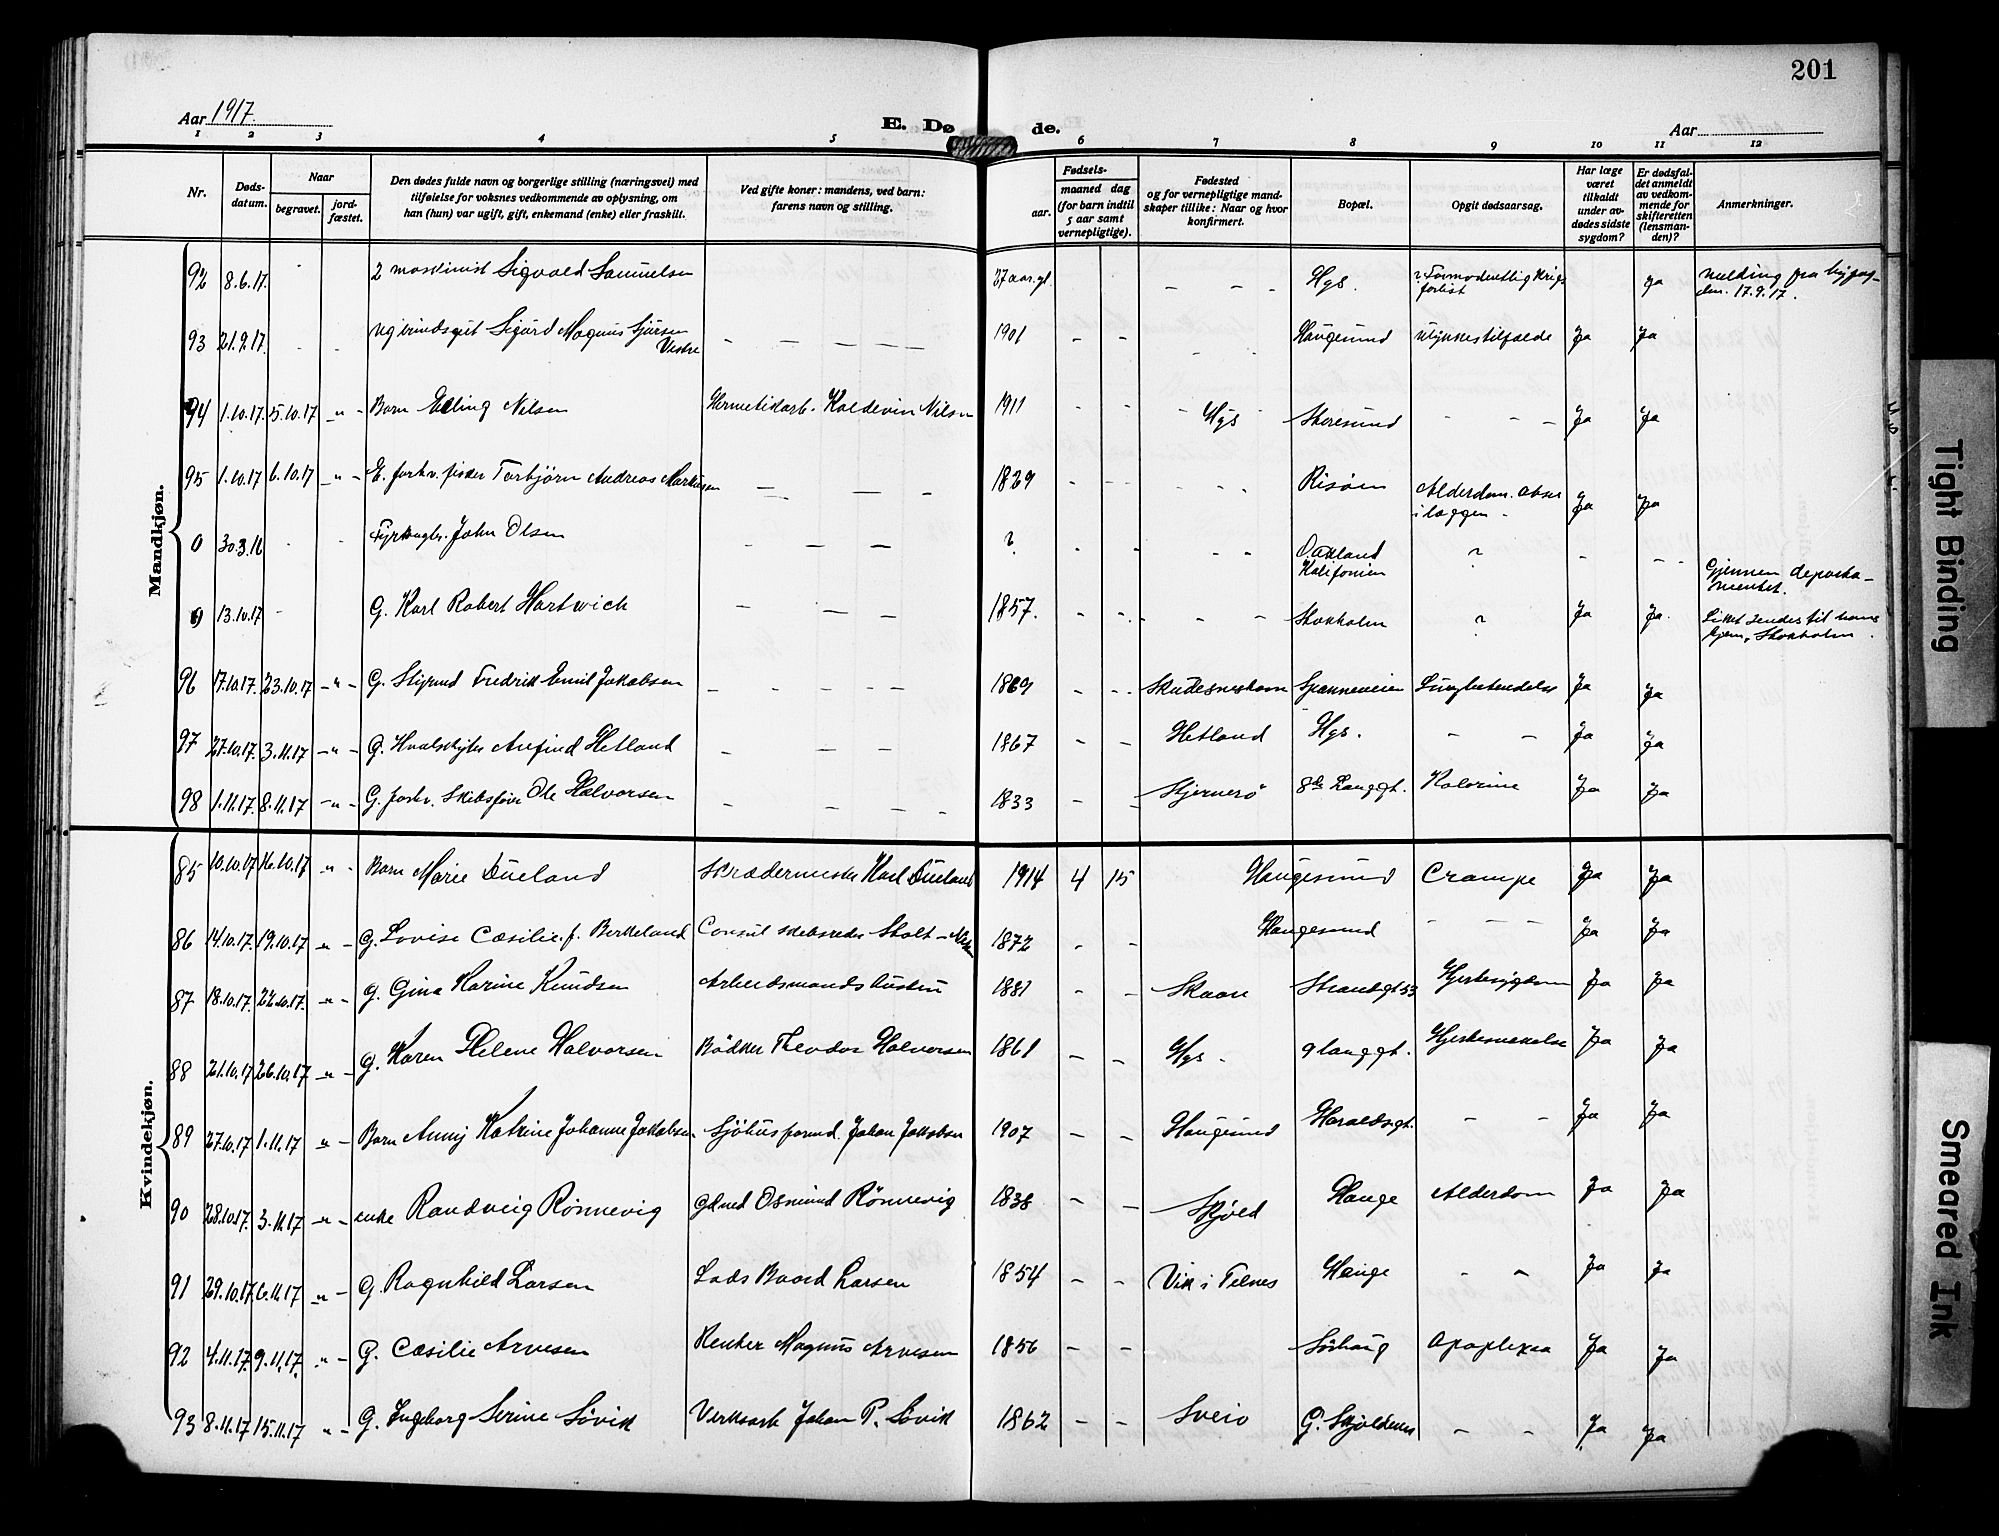 201
Aar 1917.
E. Dø de.
Aar
1 2 3 4 5 6 7 8 9 10 11 12
Nr.
Døds-
datum.
Naar
begravet.
jord-
fæstet.
Den dødes fulde navn og borgerlige stilling (næringsvei) med
tilføielse for voksnes vedkommende av oplysning, om
han (hun) var ugift, gift, enkemand (enke) eller fraskilt.
Ved gifte koner: mandens, ved barn:
farens navn og stilling.
Fødsels-
aar.
maaned dag
(for barn indtil
5 aar samt
vernepligtige).
Fødested
og for vernepligtige mand-
skaper tillike: Naar og hvor
konfirmert.
Bopæl.
Opgit dødsaarsag.
Har læge
været
tilkaldt
under av-
dødes sidste
sygdom?
Er dødsfal-
det anmeldt
av vedkom-
mende for
skifteretten
(lensman-
den)?
Anmerkninger.
Mandkjøn.
92 8.6.17. 2 maskinist Sigvald Samuelsen 37 aar gl. Hgs. ? Formodentlig krigs ja melding fra
forlist 17.9.17.
93 21.9.17 Sigurd Magnus Sjursen 1901 Haugesund ulykkestilfælde Ja Ja
Vestre
94 1.10.17 5.10.17 -"- Barn Elling Nilsen Hermetikarb. Haldevin Nilsen 1911 Hgs Storesund Ja Ja
95 1.10.17 6.10.17 -"- E. forhv. fisker Torbjørn Andreas Markussen 1829 Risöen Alderdom. Ja Ja
i læggen.
0 30.3.16 John Olsen ? Oakland ?
Kalifonien
Gjennem departe-
mentet.
0 13.10.17 G. Karl Robert Hartwich 1857. Stokholm ? Ja Ja. Liket sendes til hans
hjem, Stokholm.
96 17.10.17. 23.10.17 -"- G. Styrmd Fredrik Emil Jakobsen 1869 Skudesneshavn Spanneveien Lungbetendelse Ja Ja
97 27.10.17. 3.11.17 -"- G. Hvalskytter Arefind Hetland 1867 Hetland Hgs. Ja Ja
98 1.11.17 8.11.17 -"- G. forhv. Skibsfører Ole Halvorsen 1833 Stjernerö 8de Langgt. Kolerine Ja Ja
Kvindekjøn.
85 10.10.17 16.10.17 "- Barn Marie Dueland Skrædermester Karl Dueland 1914 4 15 Haugesund Crampe Ja Ja
86 14.10.17. 19.10.17 "- G. Lovise Cæsilie f. Berkeland Consul skibsreder Stolt-Nilsen 1872 Haugesund Ja Ja
87 18.10.17. 22.10.17. "- G. Gina Karine Knudsen Arbeidsmands hustru 1881 Skaare Strandgt 53 Hjertesygdom Ja Ja
88 21.10.17 26.10.17 "- G. Karen Helene Halvorsen Bödker Theodor Halvorsen 1861 Hgs. 9 langgt. Hjertesvækelse Ja Ja
89 27.10.17 1.11.17 "- Barn Anny Katrine Johanne Jakobsen. Sjöhusformd. Johan Jakobsen 1907 Haugesund Haraldsgt. Ja Ja
90 28.10.17. 3.11.17 "- enke Randveig Rönnevig Gdmd Osmund Rönnevig 1838 Skjold Hauge Alderdom Ja Ja
91 29.10.17. 6.11.17 "- G. Ragnhild Larsen Lods Baard Larsen 1854 Vik i Telnes Hauge Ja Ja
92 4.11.17. 9.11.17. "- G. Cæsilie Arvesen Rentier Magnus Arvesen 1856 Sörhaug Apoplexia Ja Ja
93 8.11.17 15.11.17 "- G. Ingeborg Serine Lövik Verksarb Johan P. Lövik 1862 Sveio G. Skjoldevei Ja Ja
Tight Binding
Smeared Ink